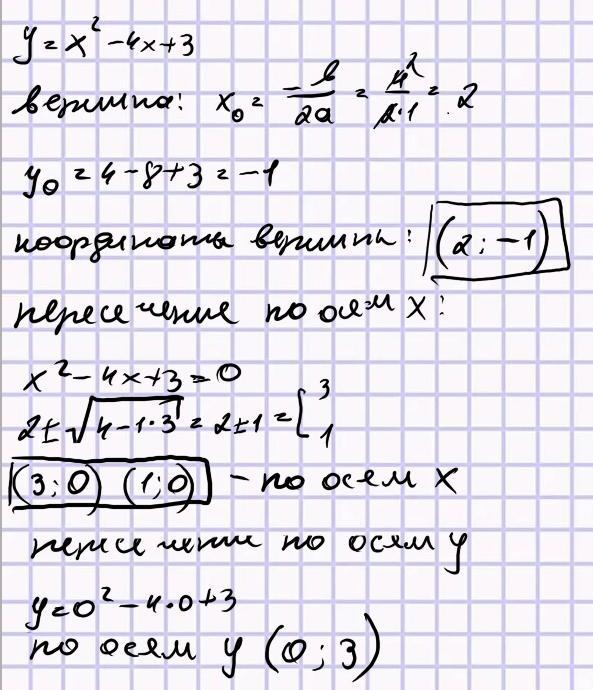 y = x² - 4x + 3
вершина: x₀ = -b/2a = 4²/2·1 = 2
y₀ = 4 - 8 + 3 = -1
координаты вершины: (2; -1)
пересечение по осям x:
x² - 4x + 3 = 0
2 ± √4 - 1·3 = 2 ± 1 = [3 1
(3; 0) (1; 0) - по осям x
пересечение по осям y
y = 0² - 4·0 + 3
по осям y (0; 3)